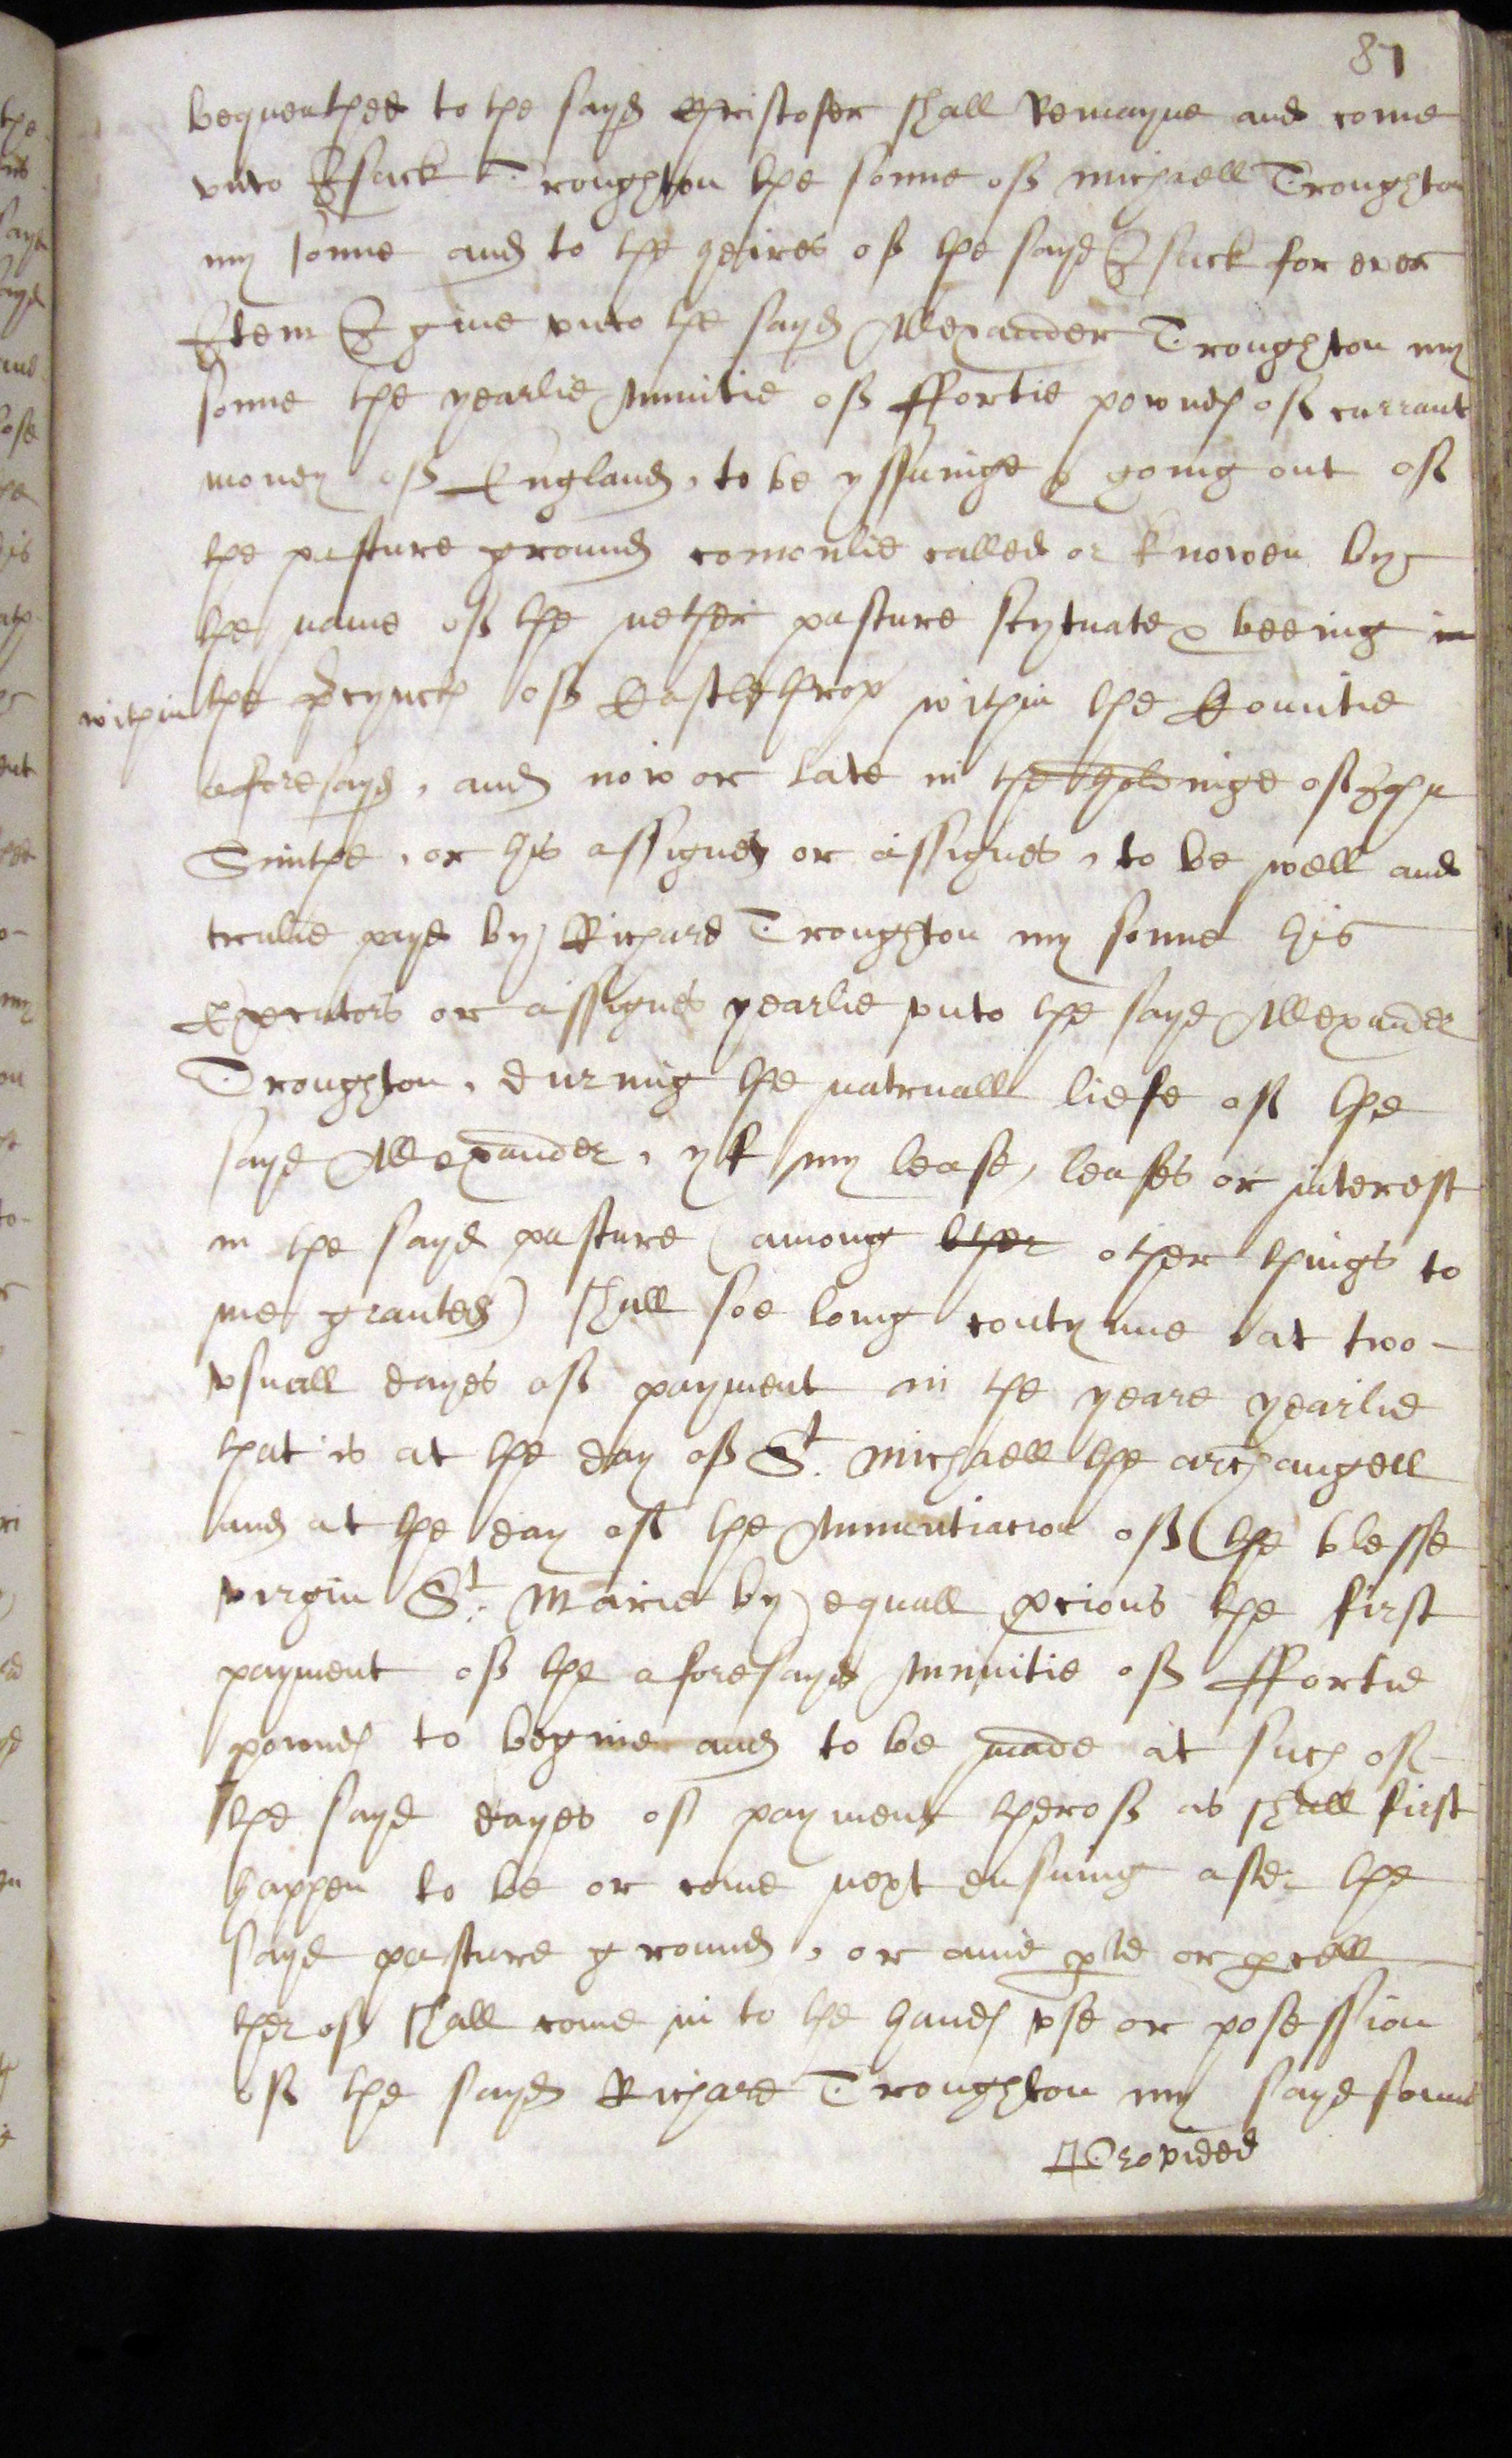 87
bequeathed to the sayd Christofer shall Remayne and come
vnto Isack Troughton the sonne off michaell Troughton
my sonne and to the heires off the sayd Isack for ever
Item I giue vnto the sayd Allexander Troughton my
sonne the yearlie Annuitie off ffortie pownds off currant
money off England, to be yssuinge & going out off
the pasture ground comonlie called or knowen by
the name off the nether pasture scytuate & beeing in
within the precyncts off Castlethrop within the Countie
aforesayd, and now or late in the holdinge off John
Smithe, or his assignes or assignes, to be well and
trulie payd by Richard Troughton my sonne his
Executors or assignes yearlie vnto the sayd Allexander
Troughton, during the naturall liefe off the
sayd Allexander, yf my lease, leases or interest
in the sayd pasture (among other things to
me granted) shall soe long contynue at two
vsuall dayes off payment in the yeare yearlie
that is at the day off St. Michaell the archangell
and at the day off the Annuntiacion off the blesse
virgin St. Marie by equall porcions the first
payment off the aforesayd Annuitie off ffortie
pownds to begine and to be made at such off
the sayd dayes off payment theroff as shall first
happen to be or come next ensuing after the
sayd pasture ground, or anie pte or pcell
theroff shall come in to the hands vse or posession
off the sayd Richard Troughton my sayd sonne
Provided